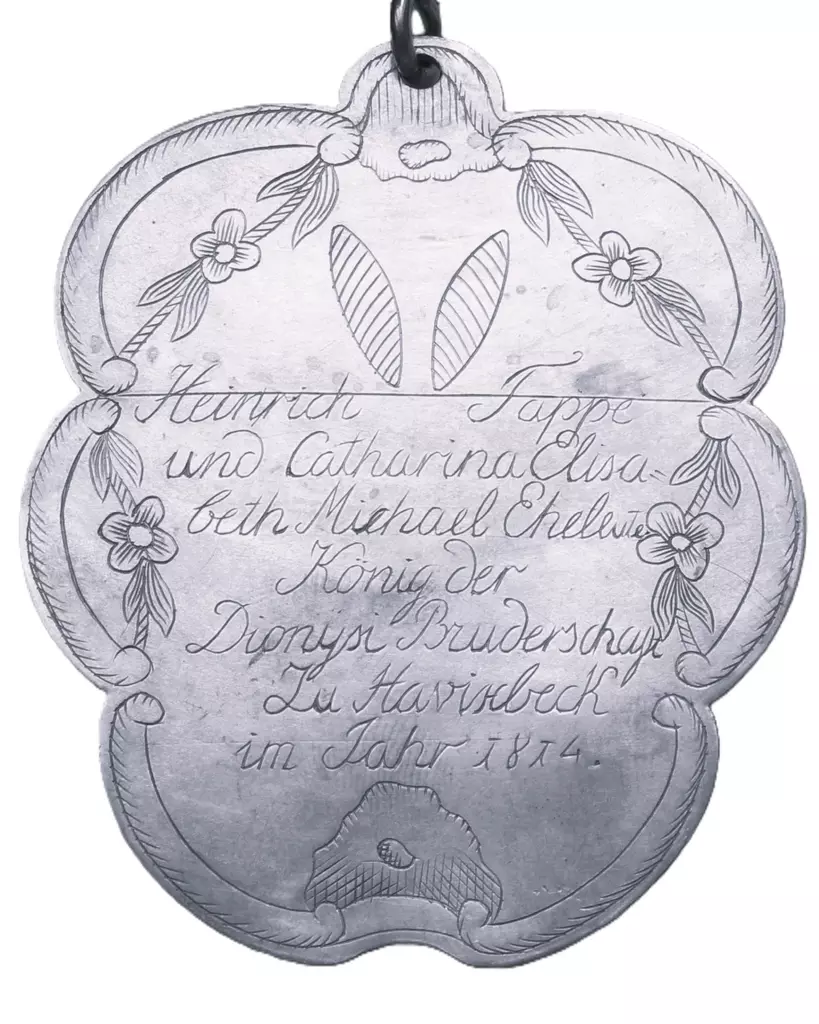 Heinrich Tappe
und Catharina Elisa-
beth Michael Eheleute
König der
Dionÿsi Bruderschaft
Zu Havixbeck
im Jahr 1814.